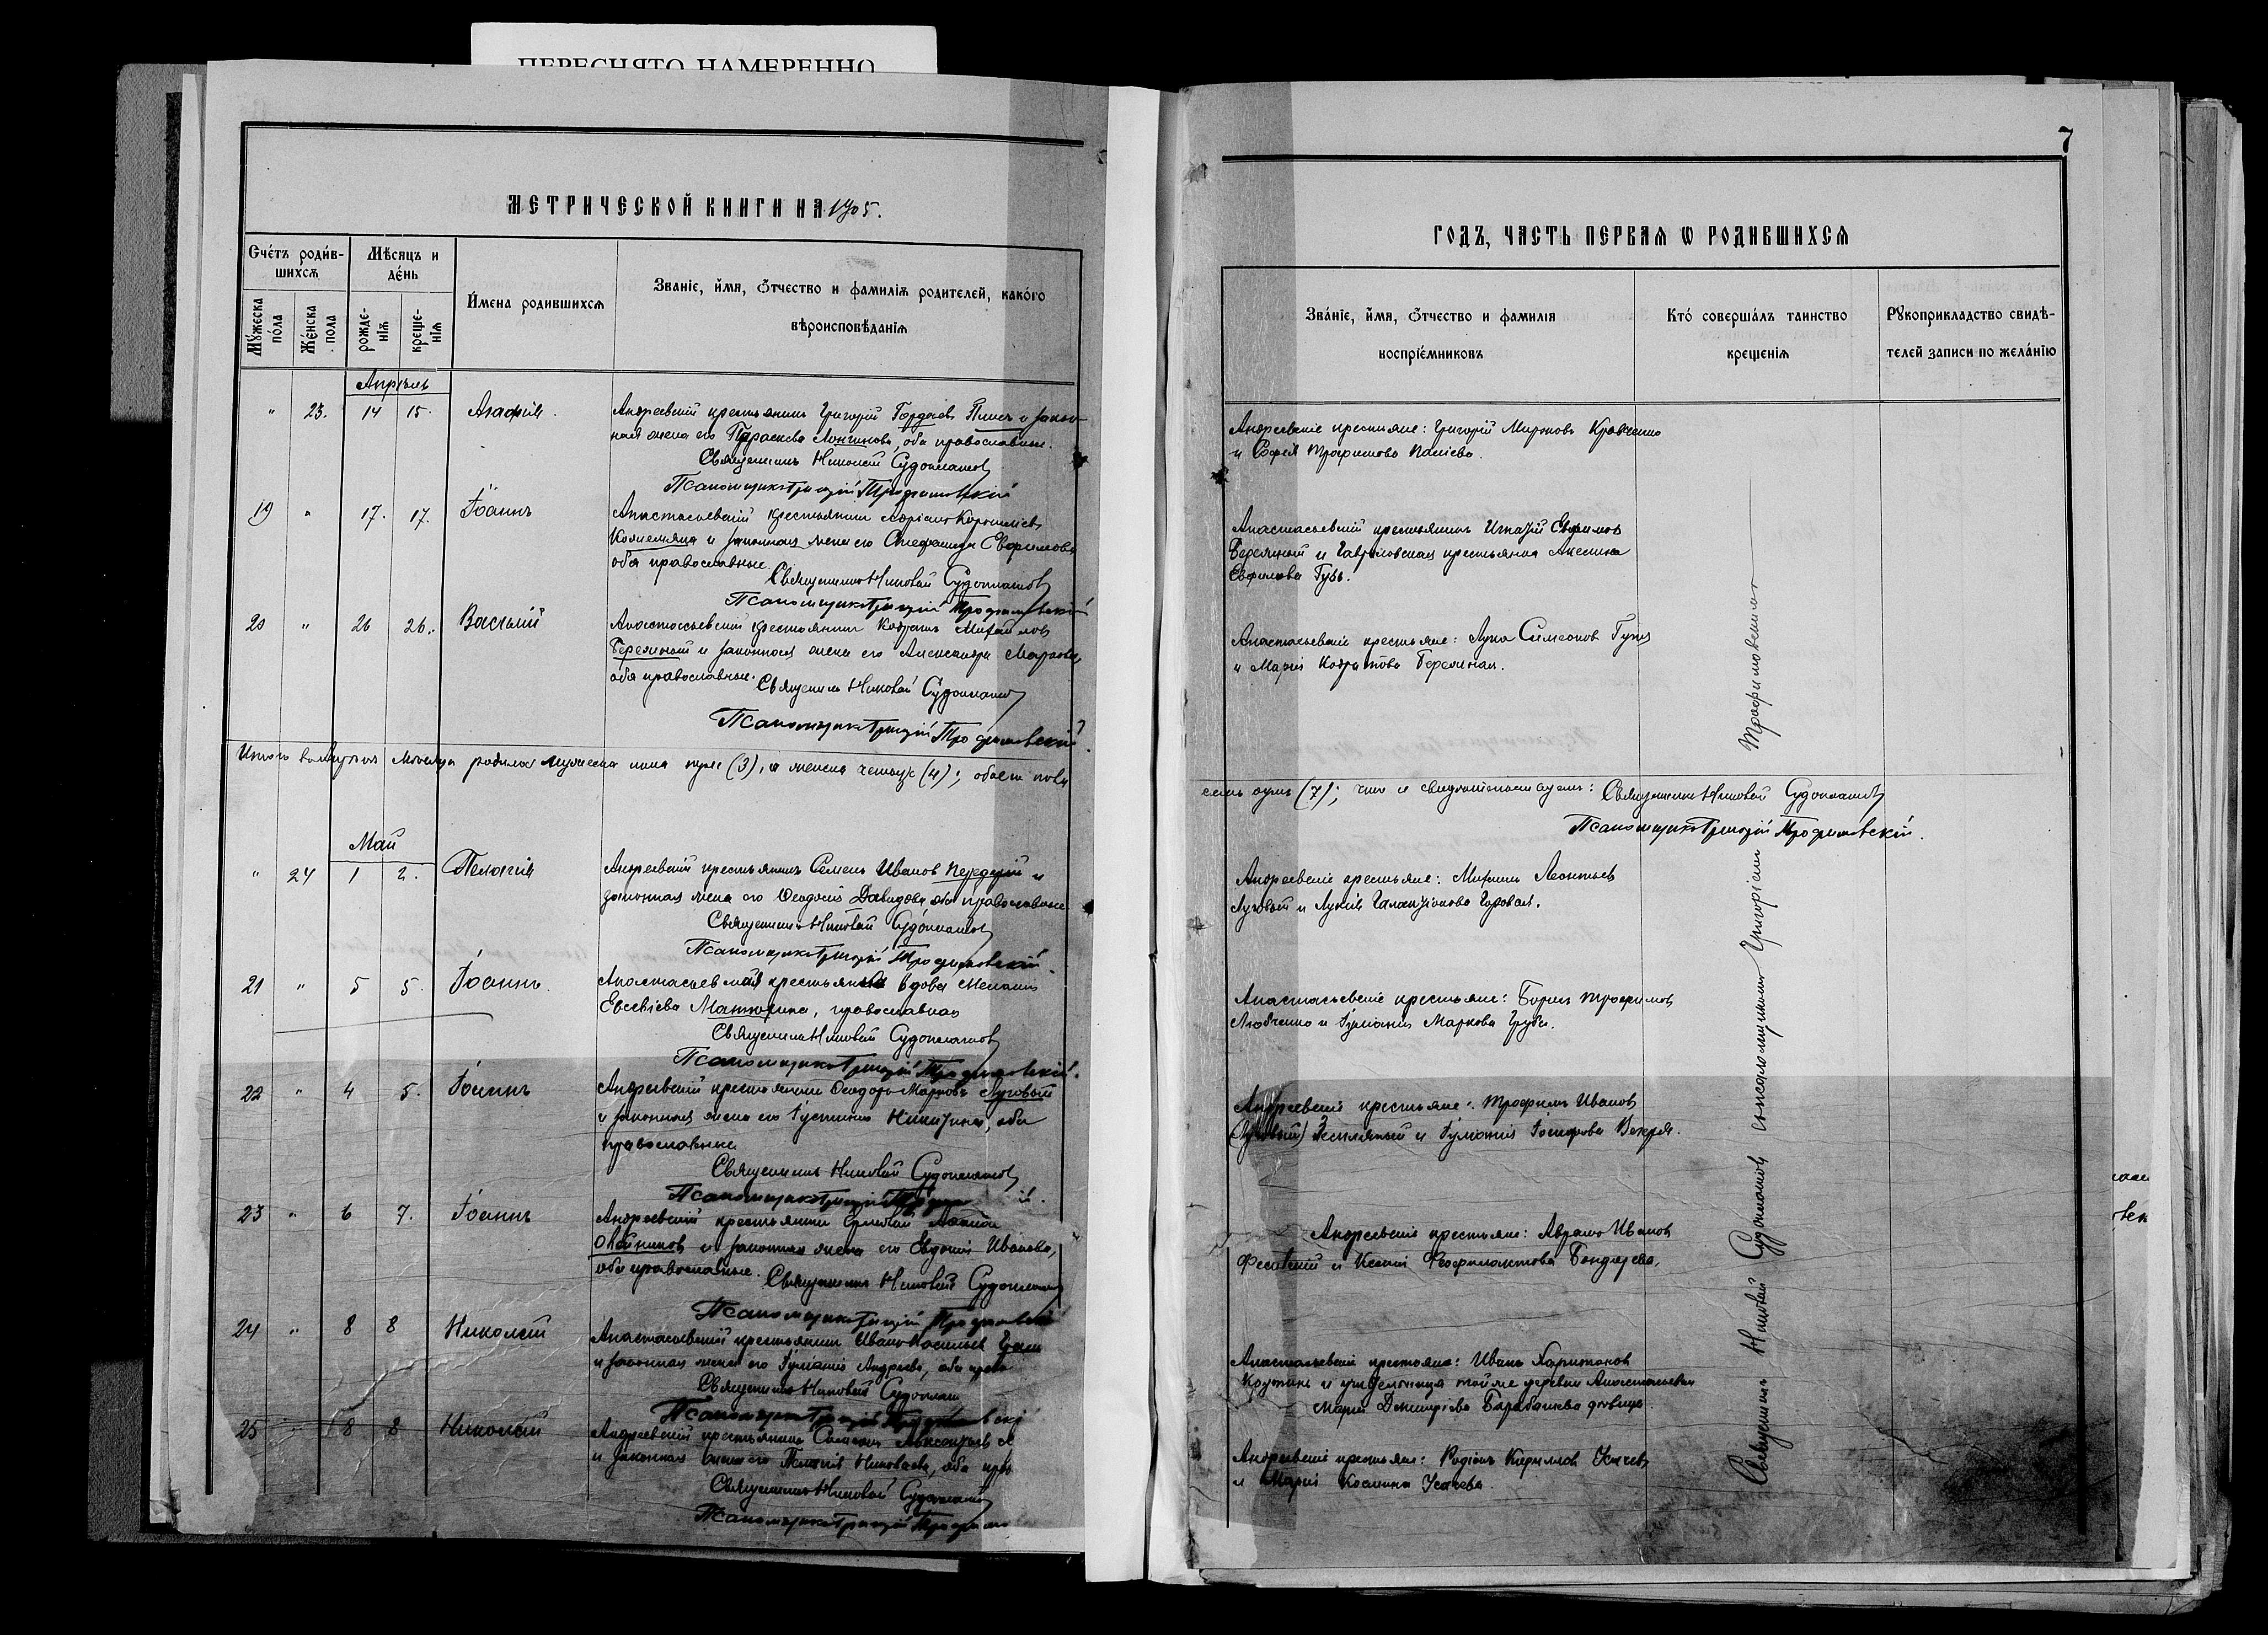 ПЕРЕСНЯТО НАМЕРЕННО
МЕТРИЧЕСКОЙ КНИГИ НА 1905.
Счétъ родив-
шихсѧ
Мѣсяцъ и
дéнь
Мꙋжеска пóла
Жéнска пола
рожде-
нїѧ
креще-
нїѧ
Имена родившихсѧ
Званїе, и́мя, Ѻтчество и фамилїѧ родителей, какóго
вѣроисповѣданїѧ
Апрѣль
" 23. 14 15. Агафія.
Андреевскій крестьянинъ Григорій Гордѣевъ Плисъ и закон-
ная жена его Параскева Лонгинова, оба православные.
Священникъ Николай Судоплатовъ
Псаломщикъ Григорій Трофимовскій
19 " 17. 17. Іоаннъ
Анастасьевскій крестьянинъ Корниліевъ
и законная жена его Стефанида Ефимова
оба православные.
Священникъ Николай Судоплатовъ
Псаломщикъ Григорій Трофимовскій
20 " 26 26. Василій
Анастасьевскій крестьянинъ Кодратъ Михайловъ
Бережный и законная жена его Александра Маркова,
оба православные.
Священникъ Николай Судоплатовъ
Псаломщикъ Григорій Трофимовскій.
Итого въ мѣсяца родилось мужеска пола три (3), а женска четыре (4); обоего пола
Май
" 24 1 2. Пелагія
Андреевскій крестьянинъ Семенъ Ивановъ и
законная жена его Ѳеодосія Давидова, оба православные
Священникъ Николай Судоплатовъ
Псаломщикъ Григорій Трофимовскій.
21 " 5 5. Іоаннъ.
Анастасьевская крестьянка вдова Меланія
Евсевіева, православная
Священникъ Николай Судоплатовъ
Псаломщикъ Григорій Трофимовскій.
22 " 4 5. Іоаннъ
Андреевскій крестьянинъ Ѳеодоръ Марковъ Луговый
и законная жена его Іустинія Никитина, оба
православные
Священникъ Николай Судоплатовъ
Псаломщикъ Григорій
23 " 6 7. Іоаннъ
Андреевскій крестьянинъ
Олейниковъ и законная жена его Евдокія Иванова,
оба православные.
Священникъ Николай Судоплатовъ
Псаломщикъ Григорій Трофимовскій
24 " 8 8 Николай
Анастасьевскій крестьянинъ Иванъ Васильевъ
и законная жена его Іуліанія Андреева, оба прав
Священникъ Николай Судоплат
Псаломщикъ Григорій Трофимовскі
25 8 8 Николай
Андреевскій крестьянинъ Симеонъ
и законная жена его Пелагія Николаева, оба прав
Священникъ Николай Судоплатовъ
Псаломщикъ Григорій Трофимо
7
ГОДЪ, ЧАСТЬ ПЕРВАѦ Ѡ РОДИВШИХСѦ
Звáнїе, и́мя, Ѻтчество и фамилїя
воспрїéмниковъ
Ктó совершáлъ таинство
крещенїѧ
Рꙋкоприкладство свидѣ-
телей записи по желáнїю
Андреевскіе крестьяне: Григорій Мироновъ Кравченко
и Софія Трофимова Паліева.
Анастасьевскій крестьянинъ Игнатій Ефимовъ
Бережный и Гавриловская крестьянка Акелина
Ефимова Гузь.
Анастасьевскіе крестьяне: Лука Симеоновъ
и Марія Кодратова Бережная.
семь душъ (7); что и свидѣтельствуемъ: Священникъ Николай Судоплатовъ
Псаломщикъ Григорій Трофимовскій.
Андреевскіе крестьяне: Михаилъ Леонтьевъ
Луговый и Лукія Галактіонова Горовая.
Анастасьевскіе крестьяне: Борисъ Трофимовъ
Любченко и Іуліанія Маркова Груба.
Андреевскіе крестьяне: Трофимъ Ивановъ
(Луговый) Земляный и Іуліанія Іосифова Вехря.
Андреевскіе крестьяне: Аврамъ Ивановъ
и Ксенія Феофилактова Бондарева.
Анастасьевскіе крестьяне: Иванъ Харитоновъ
и учительница той же деревни Анастасьевки
Марія Димитріева Барабашева дѣвица.
Андреевскіе крестьяне: Родіонъ Кирилловъ Усачевъ
и Марія Космина Усачева.
Священникъ Николай Судоплатовъ съ псаломщикомъ Григоріемъ Трофимовскимъ